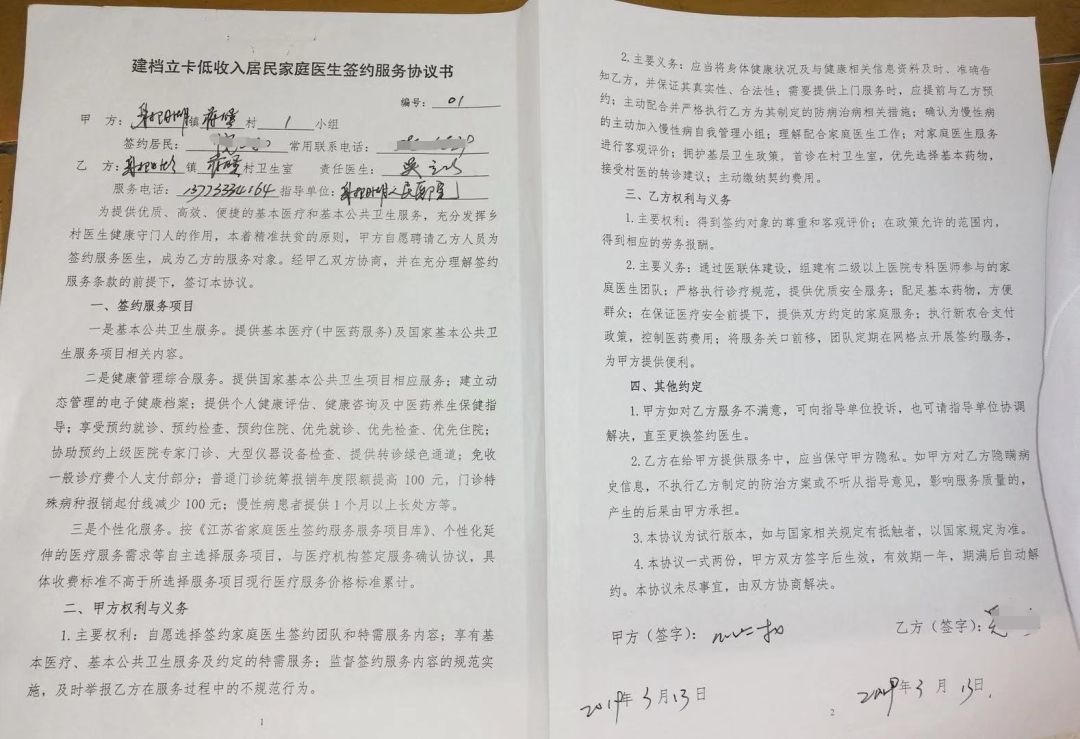 建档立卡低收入居民家庭医生签约服务协议书
编号：01
甲 方：射阳湖镇 村 1 小组
签约居民： 常用联系电话：
乙 方：射阳湖镇 村卫生室 责任医生：吴
服务电话：13773334164 指导单位：射阳湖人民医院
为提供优质、高效、便捷的基本医疗和基本公共卫生服务，充分发挥乡
村医生健康守门人的作用，本着精准扶贫的原则，甲方自愿聘请乙方人员为
签约服务医生，成为乙方的服务对象。经甲乙双方协商，并在充分理解签约
服务条款的前提下，签订本协议。
一、签约服务项目
一是基本公共卫生服务。提供基本医疗(中医药服务)及国家基本公共卫
生服务项目相关内容。
二是健康管理综合服务。提供国家基本公共卫生项目相应服务；建立动
态管理的电子健康档案；提供个人健康评估、健康咨询及中医药养生保健指
导；享受预约就诊、预约检查、预约住院、优先就诊、优先检查、优先住院；
协助预约上级医院专家门诊、大型仪器设备检查、提供转诊绿色通道；免收
一般诊疗费个人支付部分；普通门诊统筹报销年度限额提高 100 元，门诊特
殊病种报销起付线减少 100 元；慢性病患者提供 1 个月以上长处方等。
三是个性化服务。按《江苏省家庭医生签约服务服务项目库》、个性化延
伸的医疗服务需求等自主选择服务项目，与医疗机构签定服务确认协议，具
体收费标准不高于所选择服务项目现行医疗服务价格标准累计。
二、甲方权利与义务
1.主要权利：自愿选择签约家庭医生签约团队和特需服务内容；享有基
本医疗、基本公共卫生服务及约定的特需服务；监督签约服务内容的规范实
施，及时举报乙方在服务过程中的不规范行为。
1
2.主要义务：应当将身体健康状况及与健康相关信息资料及时、准确告
知乙方，并保证其真实性、合法性；需要提供上门服务时，应提前与乙方预
约；主动配合并严格执行乙方为其制定的防病治病相关措施；确认为慢性病
的主动加入慢性病自我管理小组；理解配合家庭医生工作；对家庭医生服务
进行客观评价；拥护基层卫生政策，首诊在村卫生室，优先选择基本药物，
接受村医的转诊建议；主动缴纳契约费用。
三、乙方权利与义务
1.主要权利：得到签约对象的尊重和客观评价；在政策允许的范围内，
得到相应的劳务报酬。
2.主要义务：通过医联体建设，组建有二级以上医院专科医师参与的家
庭医生团队；严格执行诊疗规范，提供优质安全服务；配足基本药物，方便
群众；在保证医疗安全前提下，提供双方约定的家庭服务；执行新农合支付
政策，控制医药费用；将服务关口前移，团队定期在网格点开展签约服务，
为甲方提供便利。
四、其他约定
1.甲方如对乙方服务不满意，可向指导单位投诉，也可请指导单位协调
解决，直至更换签约医生。
2.乙方在给甲方提供服务中，应当保守甲方隐私。如甲方对乙方隐瞒病
史信息，不执行乙方制定的防治方案或不听从指导意见，影响服务质量的，
产生的后果由甲方承担。
3.本协议为试行版本，如与国家相关规定有抵触者，以国家规定为准。
4.本协议一式两份，甲方双方签字后生效，有效期一年，期满后自动解
约。本协议未尽事宜，由双方协商解决。
甲方（签字）： 乙方（签字）：
2019年 3月 13日 2019年 3 月 13日
2